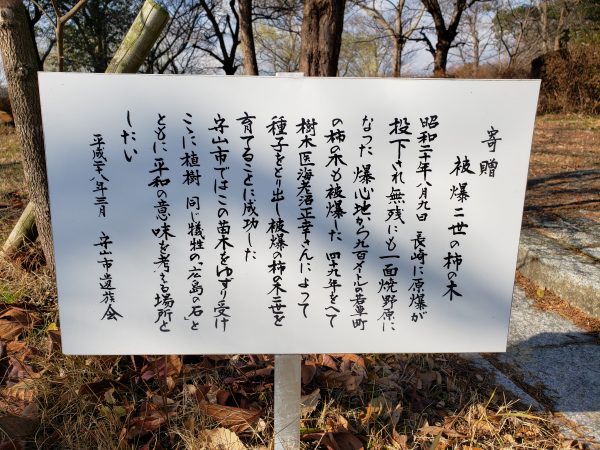 寄贈
被爆二世の柿の木
昭和二十年八月九日 長崎に原爆が
投下され無残にも一面焼野原に
なった 爆心地から九百メートルの若草町
の柿の木も被爆した 四九年をへて
樹木医海老沼正幸さんによって
種子をとり出し被爆の柿の木二世を
育てることに成功した
守山市ではこの苗木をゆずり受け
ここに植樹 同じ犠牲の“広島の石”と
ともに平和の意味を考える場所と
したい
平成二十八年三月 守山市遺族会